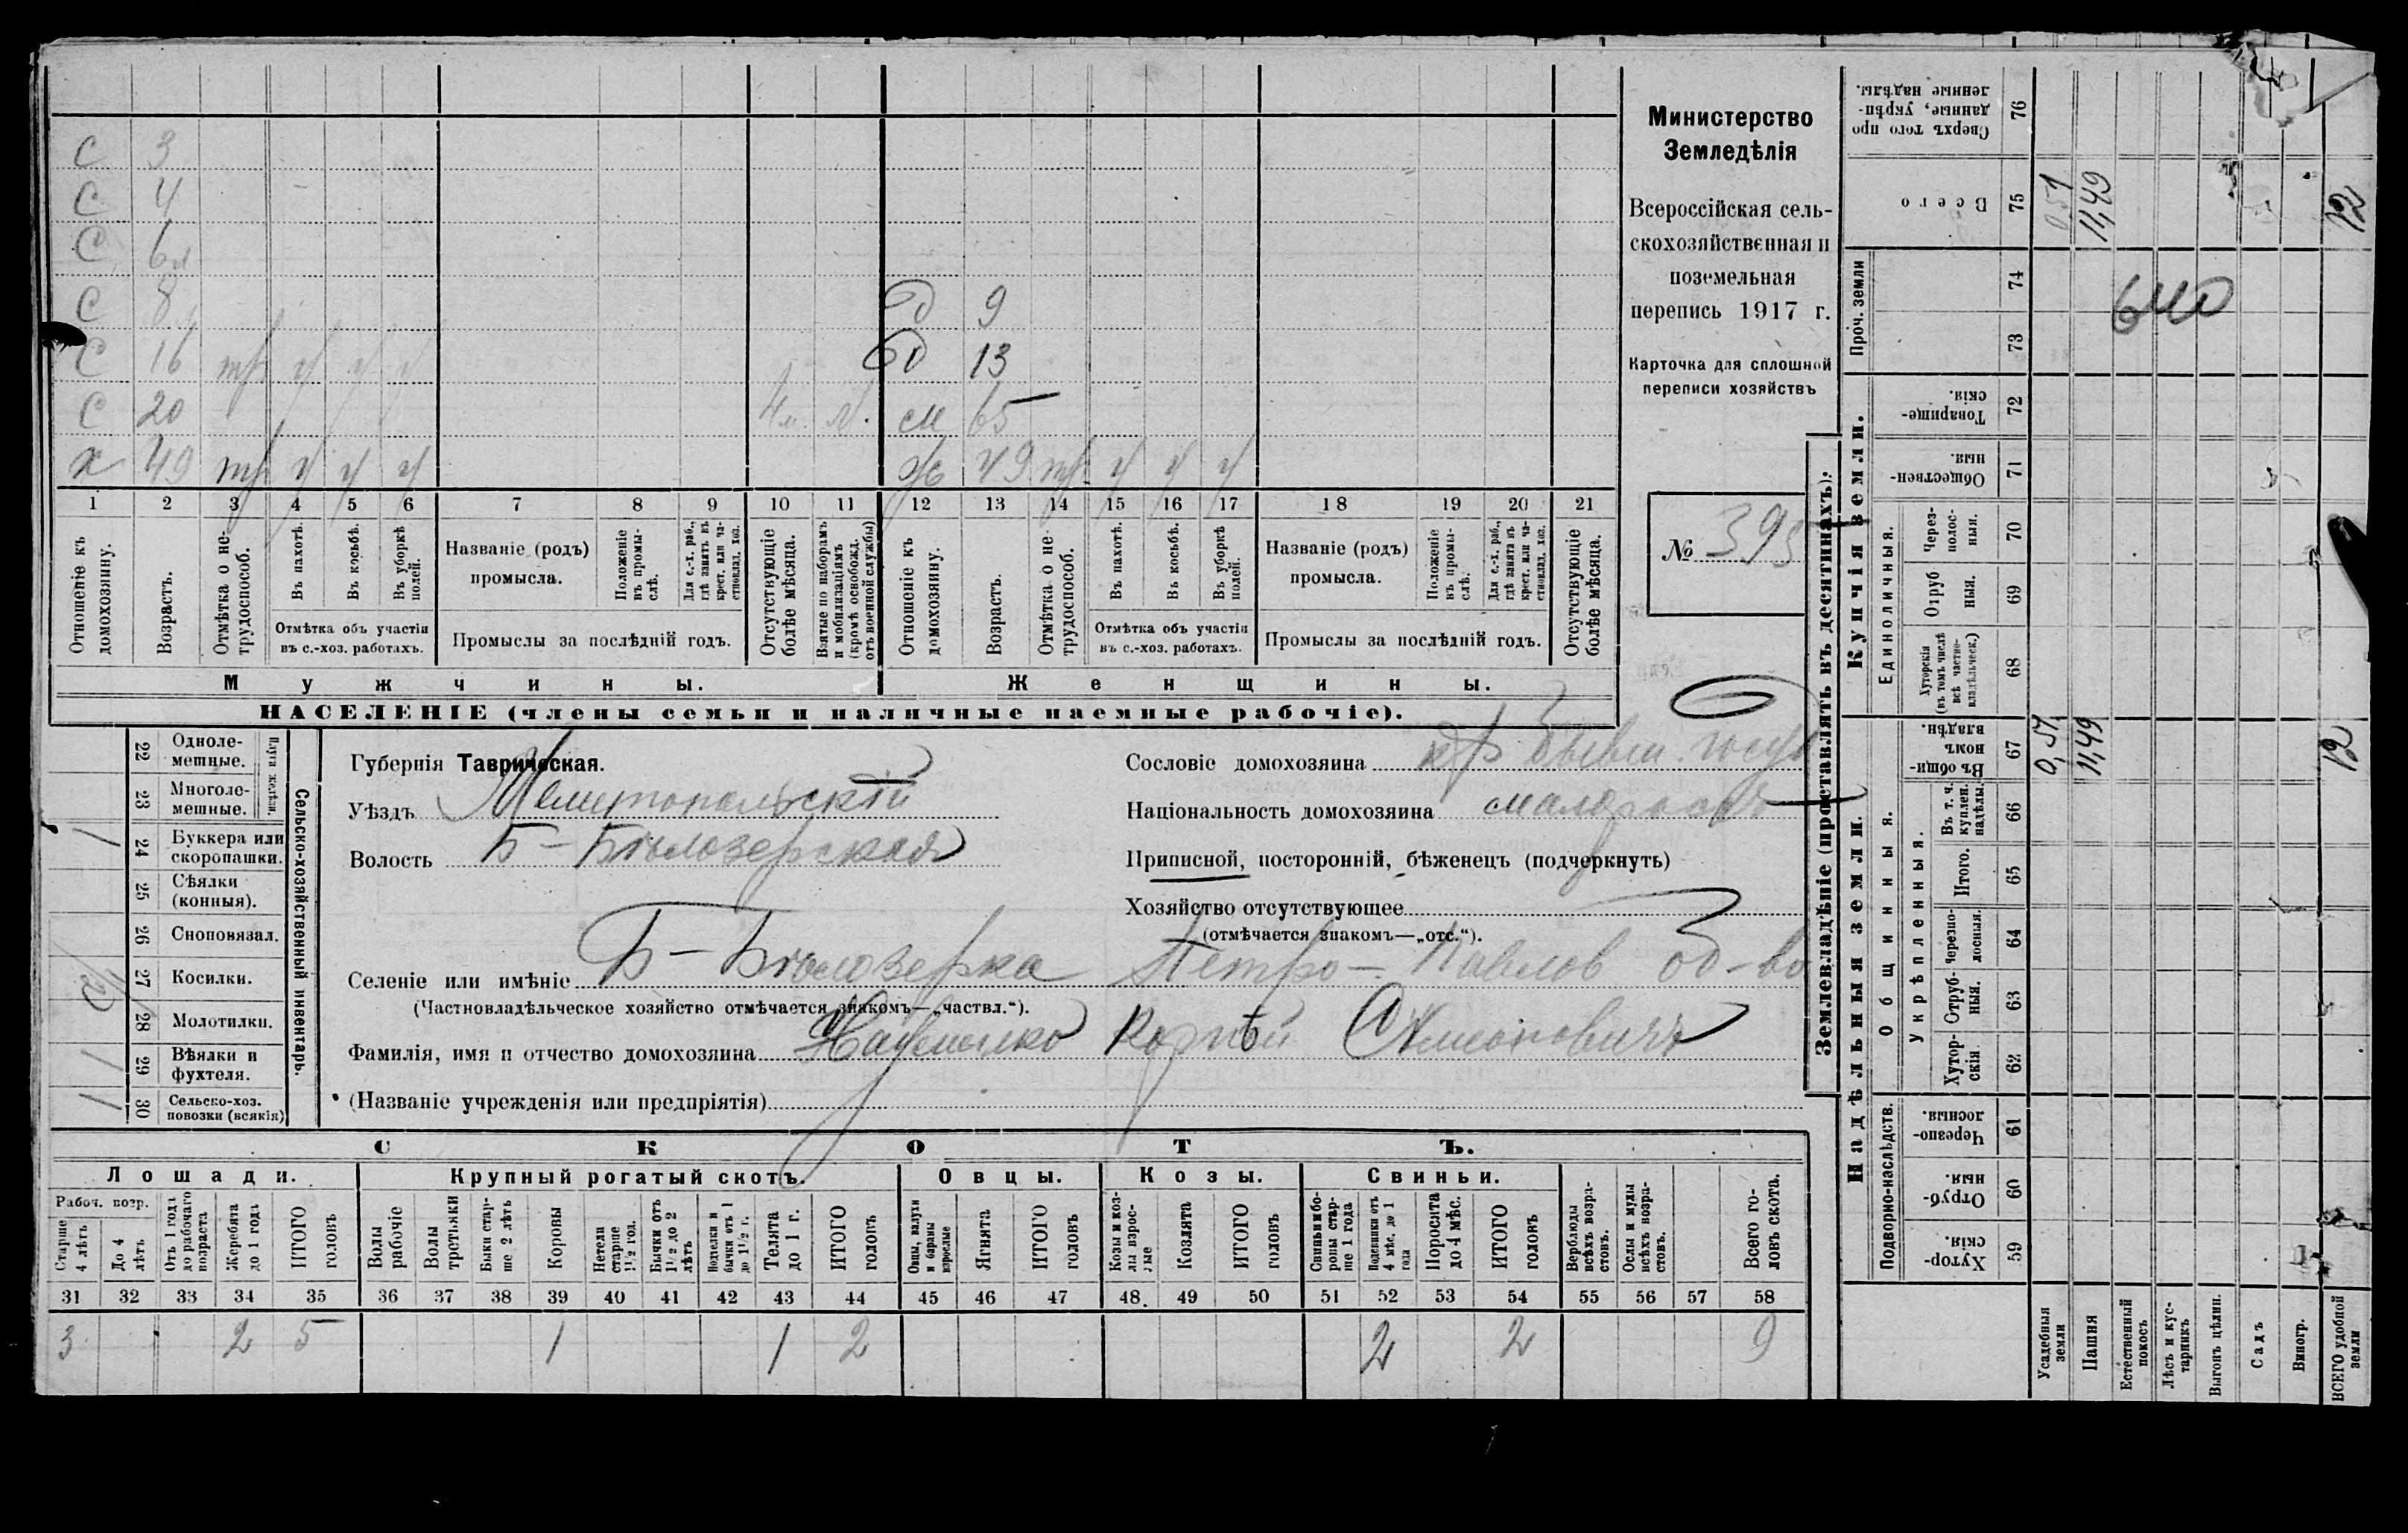 С 3
С 4
С 6л
С 8 д 9
С 16 тр ч ч ч д 13
С 20 4м. м. см 65
х 49 тр ч ч ч ж 49 тр ч ч ч
1 2 3 4 5 6 7 8 9 10 11 12 13 14 15 16 17 18 19 20 21
Отношеніе къ домохозяину.
Возрастъ.
Отмѣтка о не-трудоспособ.
Въ пахотѣ.
Въ косьбѣ.
Въ уборкѣ полей.
Отмѣтка объ участіи въ с.-хоз. работахъ.
Названіе (родъ) промысла.
Положеніе въ промы-слѣ.
Для с.-х. раб., гдѣ занятъ въ крест. или ча-стновлад. хоз.
Промыслы за послѣдній годъ.
Отсутствующіе болѣе мѣсяца.
Взятые по наборамъ и мобилизаціямъ (кромѣ освобожд. отъ военной службы)
Отношеніе къ домохозяину.
Возрастъ.
Отмѣтка о не-трудоспособ.
Въ пахотѣ.
Въ косьбѣ.
Въ уборкѣ полей.
Отмѣтка объ участіи въ с.-хоз. работахъ.
Названіе (родъ) промысла.
Положеніе въ промы-слѣ.
Для с.-х. раб., гдѣ занята въ крест. или ча-стновлад. хоз.
Промыслы за послѣдній годъ.
Отсутствующіе болѣе мѣсяца.
Мужчины.
Женщины.
НАСЕЛЕНІЕ (члены семьи и наличные наемные рабочіе).
Министерство
Земледѣлія
Всероссійская сель-
скохозяйственная и
поземельная
перепись 1917 г.
Карточка для сплошной
переписи хозяйствъ
№ 393
22 Одноле-мешные.
23 Многоле-мешные.
24 Буккера или скоропашки. 1
25 Сѣялки (конныя).
26 Сноповязал.
27 Косилки.
28 Молотилки.
29 Вѣялки и фухтеля. 1
30 Сельско-хоз. повозки (всякія) 1
Сельско-хозяйственный инвентарь.
Губернія Таврическая.
Уѣздъ Мелитопольскій
Волость Б-Бѣлозерская
Сословіе домохозяина кр бывш. госуд
Національность домохозяина малороссъ
Приписной, посторонній, бѣженецъ (подчеркнуть)
Хозяйство отсутствующее
(отмѣчается знакомъ—„отс.“).
Селеніе или имѣніе Б-Бѣлозерка Петро-Павлов об-во
(Частновладѣльческое хозяйство отмѣчается знакомъ—„частвл.“).
Фамилія, имя и отчество домохозяина Науменко Корнѣй
(Названіе учрежденія или предпріятія)
СКОТЪ.
Лошади. Крупный рогатый скотъ. Овцы. Козы. Свиньи.
Рабоч. возр.
Старше 4 лѣтъ
До 4 лѣтъ
Отъ 1 года до рабочаго возраста
Жеребята до 1 года
ИТОГО головъ
Волы рабочіе
Волы третьяки
Быки стар-ше 2 лѣтъ
Коровы
Нетели старше 1½ год.
Бычки отъ 1½ до 2 лѣтъ
Подтелки и бычки отъ 1 до 1½ г.
Телята до 1 г.
ИТОГО головъ
Овцы, валухи и бараны взрослые
Ягнята
ИТОГО головъ
Козы и коз-лы взрос-лые
Козлята
ИТОГО головъ
Свиньи и бо-ровы стар-ше 1 года
Подсвинки отъ 4 мѣс. до 1 года
Поросята до 4 мѣс.
ИТОГО головъ
Верблюды всѣхъ возра-стовъ.
Ослы и мулы всѣхъ возра-стовъ.
Всего го-ловъ скота.
31 32 33 34 35 36 37 38 39 40 41 42 43 44 45 46 47 48 49 50 51 52 53 54 55 56 57 58
3 2 5 1 1 2 2 2 9
Землевладѣніе (проставлять въ десятинахъ).
Надѣльныя земли. Купчія земли. Проч. земли
Подворно-наслѣдств. Общинныя. Укрѣпленныя. Единоличныя.
Сверхъ того про данные, укрѣп-ленные надѣлы. 76
Всего 75 0,51 11,49 12
74
73
640
Товарище-скія. 72
Обществен-ныя. 71
Через-полос-ныя. 70
Отруб ныя. 69
Хуторскія (въ томъ числѣ всѣ частно-владѣльческ.) 68
Въ общи-номъ владѣн. 67 0,51 11,49 12
Въ т. ч. куплен. надѣлы. 66
Итого. 65
Черезпо-лосныя. 64
Отруб-ныя. 63
Хутор-скія 62
Черезпо-лосныя. 61
Отруб-ныя. 60
Хутор-скія. 59
Усадебныя земли
Пашня
Естественный покосъ
Лѣсъ и кус-тарникъ
Выгонъ цѣлин.
Садъ
Виногр.
ВСЕГО удобной земли